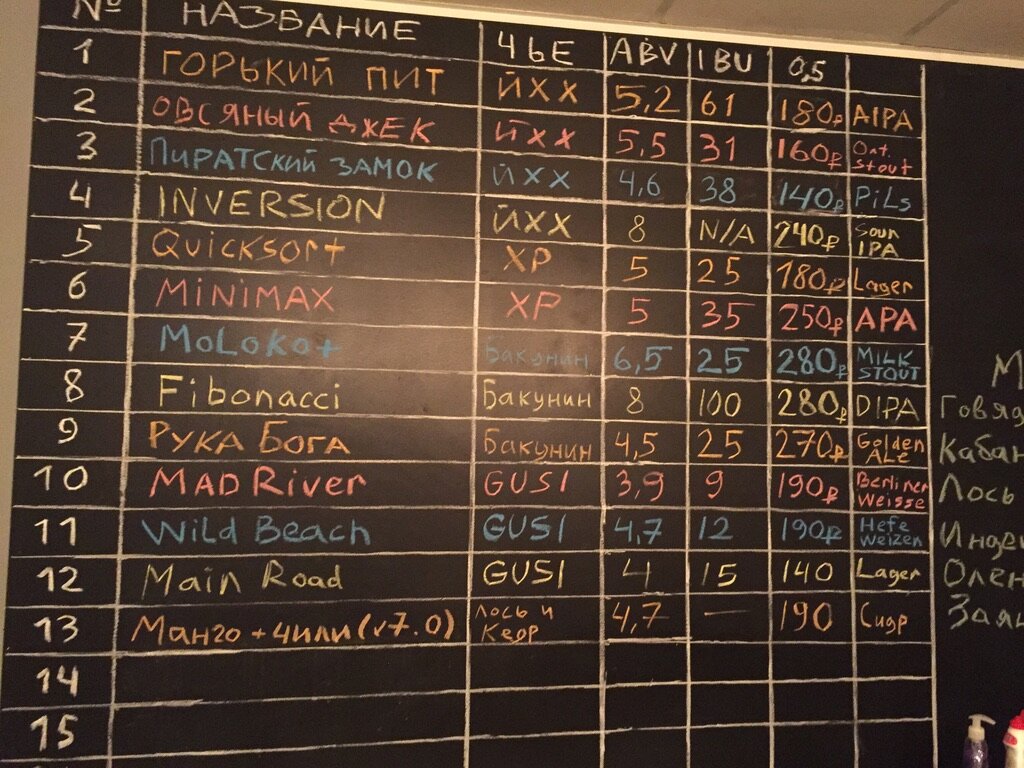 № НАЗВАНИЕ ЧЬЕ ABV IBU 0,5
1 ГОРЬКИЙ ПИТ ЙХХ 5,2 61 180₽ AIPA
2 ОВСЯНЫЙ ДЖЕК ЙХХ 5,5 31 160₽ Oat. Stout
3 ПИРАТСКИЙ ЗАМОК ЙХХ 4,6 38 140₽ PiLs
4 INVERSION ЙХХ 8 N/A 240₽ Sour IPA
5 Quicksort XP 5 25 180₽ Lager
6 MiNiMAX XP 5 35 250₽ APA
7 MoLoko+ Бакунин 6,5 25 280₽ MiLK STOUT
8 Fibonacci Бакунин 8 100 280₽ DIPA
9 РУКА БОГА Бакунин 4,5 25 270₽ Golden ALe
10 MAD River GUSI 3,9 9 190₽ Berliner Weisse
11 Wild Beach GUSI 4,7 12 190₽ Hefe Weizen
12 Main Road GUSI 4 15 140 Lager
13 Манго + чили (v7.0) Лось и Кедр 4,7 — 190 Сидр
14
15
М
Говяд
Кабан
Лось
Индей
Олен
Заяц